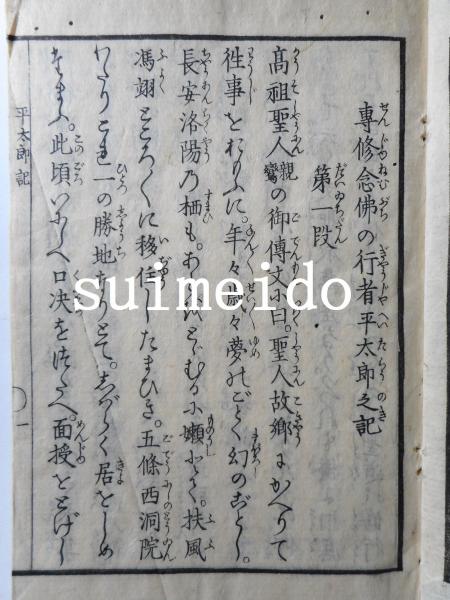 專修念佛の行者平太郎之記
第一段
高祖聖人親鸞の御傳文に曰。聖人故郷にかへりて
徃事をおもふに。年々歳々夢のごとく幻のごとし。
長安洛陽の栖も。あとをとゞむるに嬾とて。扶風
馮翊ところ〴〵に移住したまひき。五條西洞院
わたりこれ一の勝地なりとて。しばらく居をしめ
たまふ。此頃いにしへ口决を伝へ。面授をとげし
平太郎記
一
suimeido